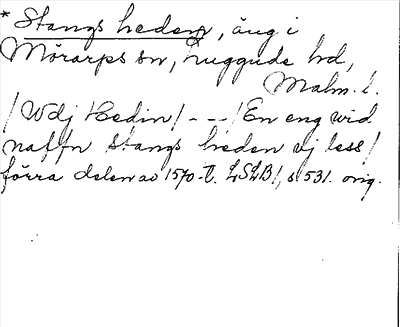 * Stangs heden, äng i
Mörarps sn, Luggude hd,
Malm. l.
/Wdj Hedin/ - - -/En eng wid
naffn Stangs heden vj less/
förra delen av 1570-t. LSLB1, s 531. orig.